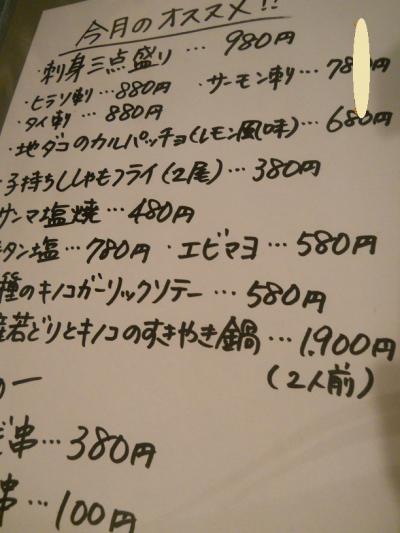 今月のオススメ!!
・刺身三点盛り … 980円
・ヒラソ刺り…880円 ・サーモン刺り…780円
・タイ刺り … 880円
・地ダコのカルパッチョ(レモン風味)…680円
・子持ちししゃもフライ(2尾)…380円
サンマ塩焼…480円
タン塩…780円 ・エビマヨ…580円
種のキノコガーリックソテー…580円
若どりとキノコのすきやき鍋…1,900円
(2人前)
串…380円
串…100円